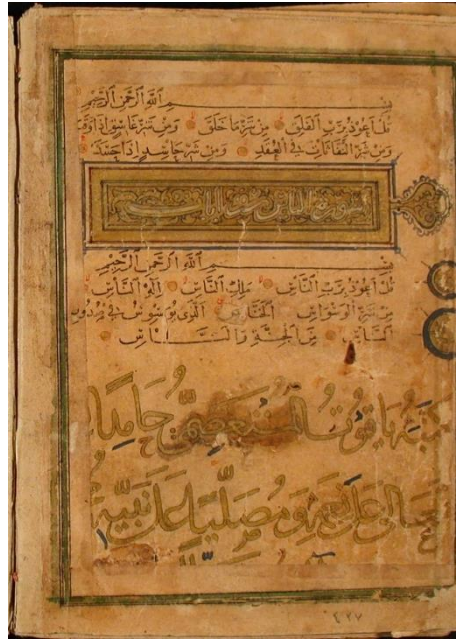 بسم الله الرحمن الرحيم
قل أعوذ برب الفلق من شر ما خلق ومن شر غاسق إذا وقب
ومن شر النفاثات في العقد ومن شر حاسد إذا حسد
سورة الناس
بسم الله الرحمن الرحيم
قل أعوذ برب الناس ملك الناس إله الناس
من شر الوسواس الخناس الذي يوسوس في صدور
الناس من الجنة والناس
كتبه ياقوت المستعصمي حامدا
على نعمه ومصليا على نبيه